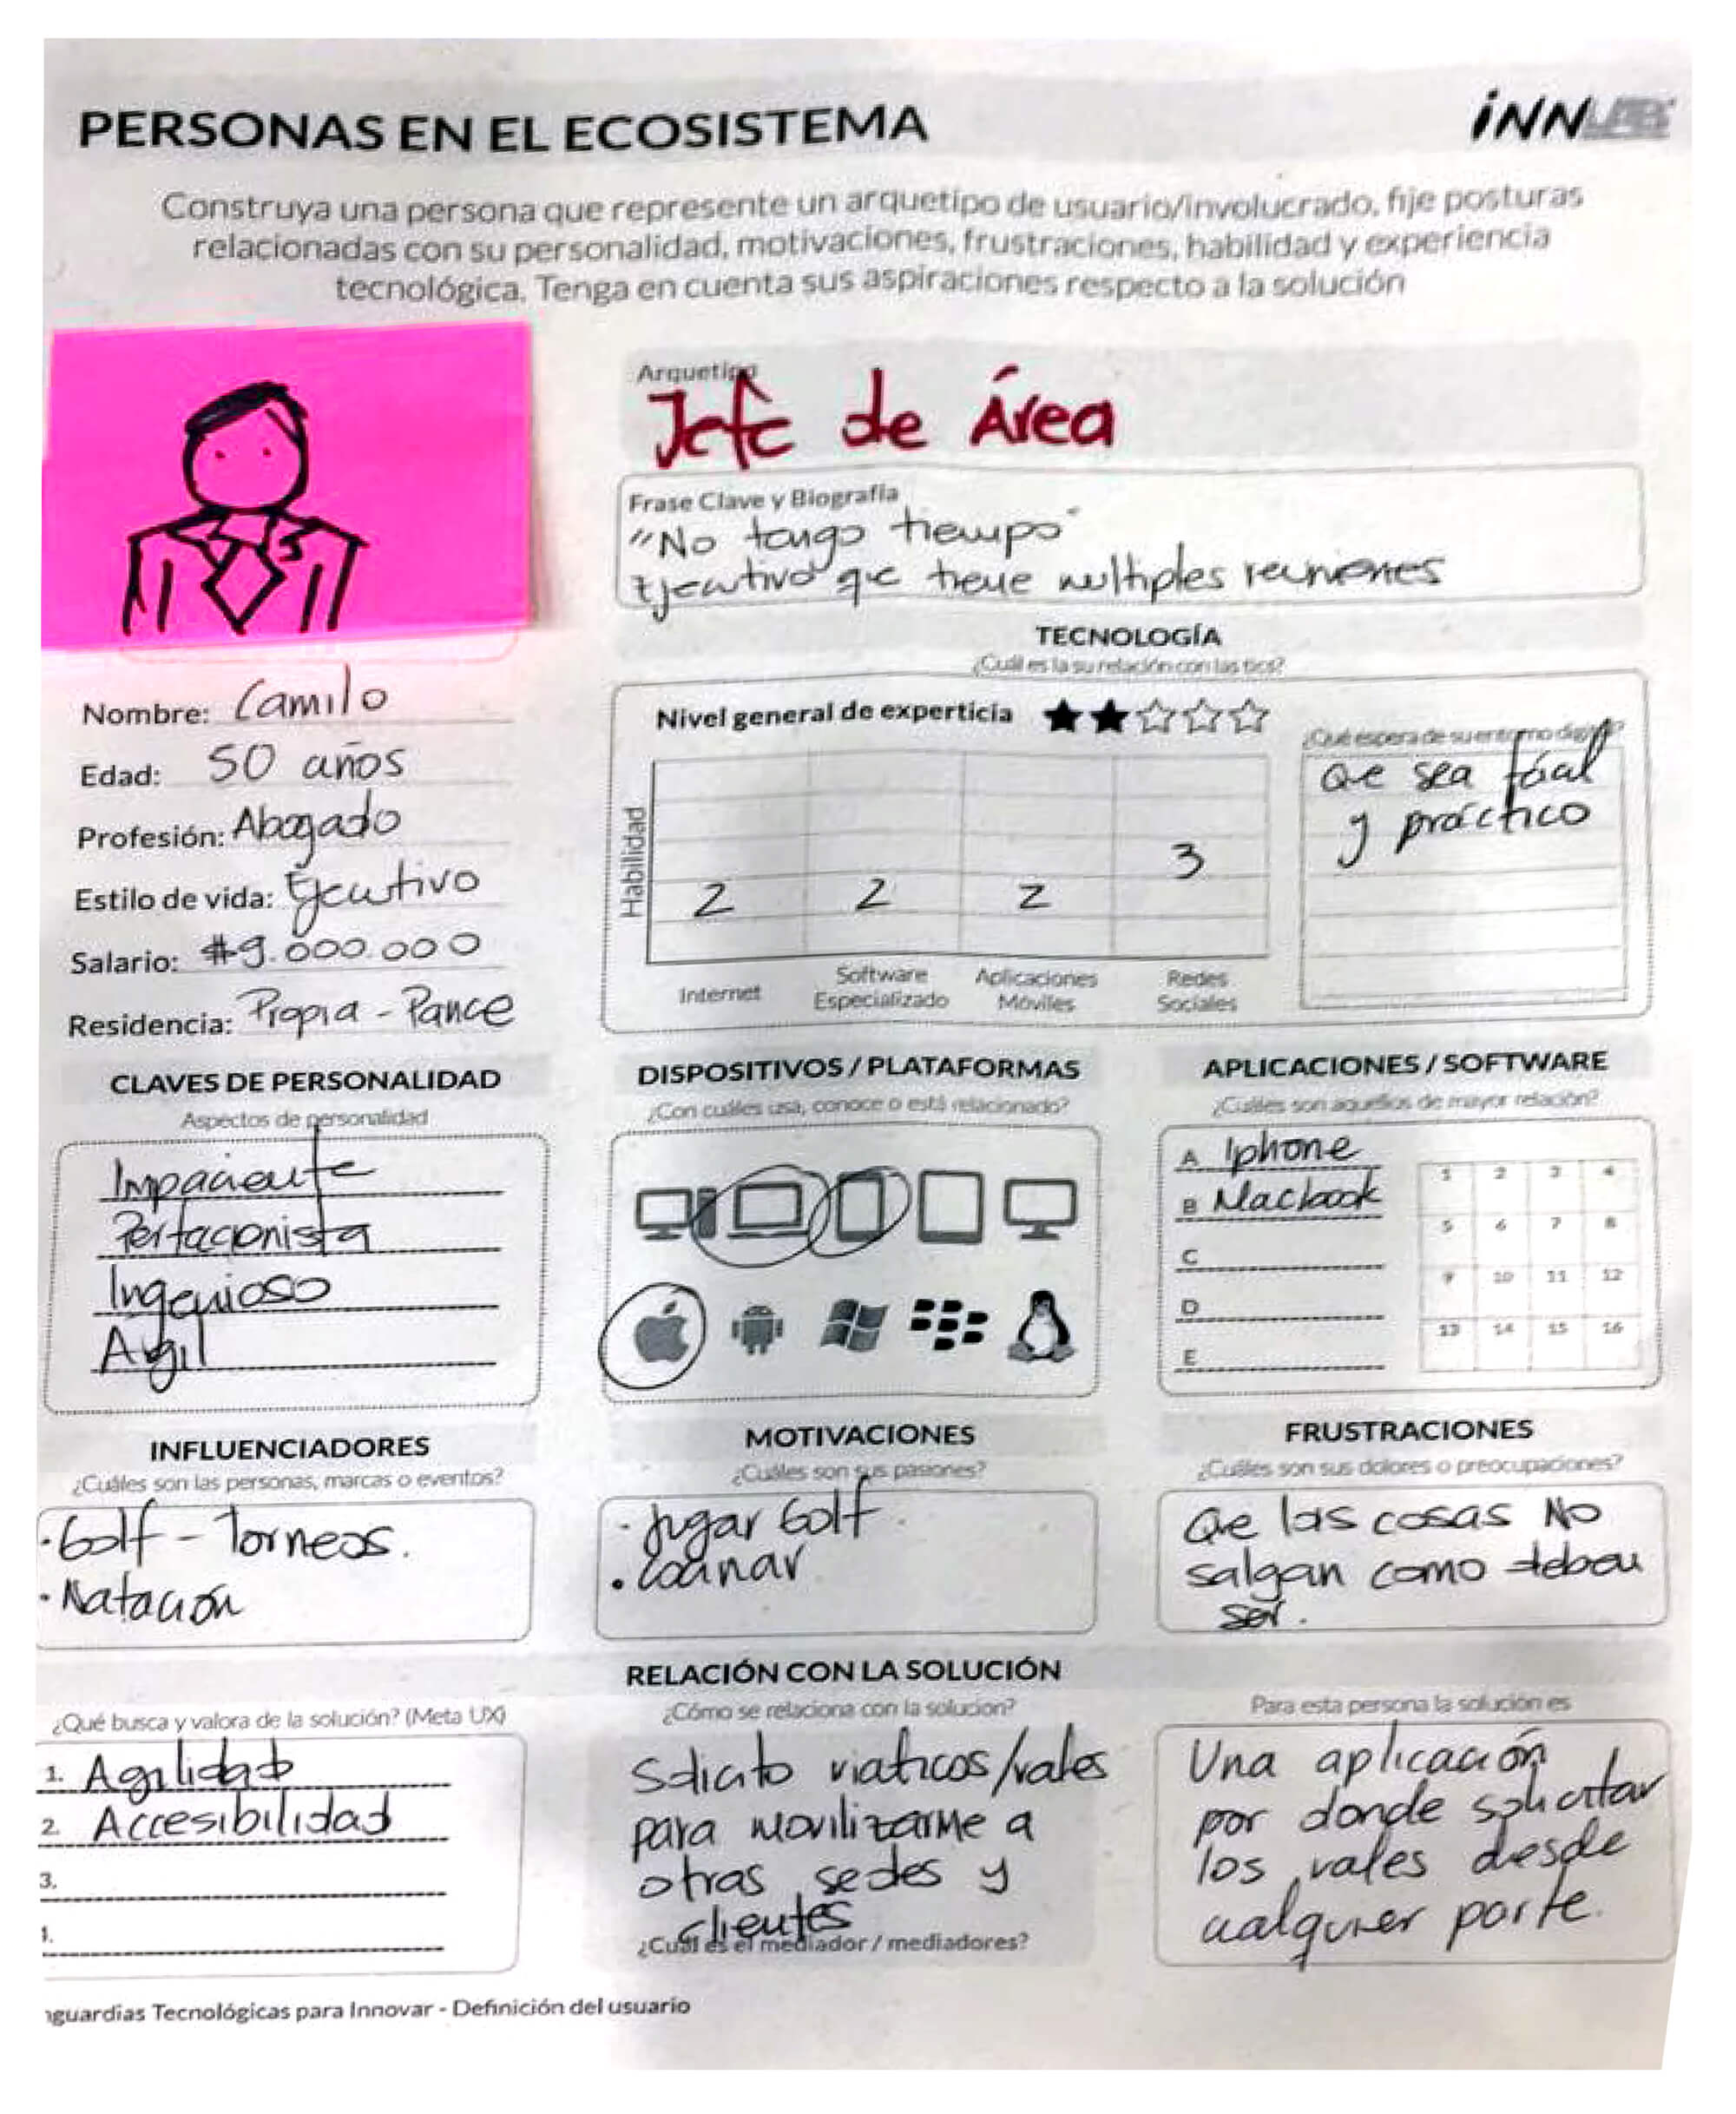 PERSONAS EN EL ECOSISTEMA
INNLAB
Construya una persona que represente un arquetipo de usuario/involucrado, fije posturas
relacionadas con su personalidad, motivaciones, frustraciones, habilidad y experiencia
tecnológica. Tenga en cuenta sus aspiraciones respecto a la solución
Arquetipo
Jefe de Área
Frase Clave y Biografía
"No tengo tiempo"
Ejecutivo que tiene multiples reuniones
Nombre: Camilo
Edad: 50 años
Profesión: Abogado
Estilo de vida: Ejecutivo
Salario: $9.000.000
Residencia: Propia - Pance
TECNOLOGÍA
¿Cuál es la su relación con las tics?
Nivel general de experticia
Habilidad
2 2 2 3
Internet
Software Especializado
Aplicaciones Móviles
Redes Sociales
¿Qué espera de su entorno digital?
Que sea fácil
y práctico
CLAVES DE PERSONALIDAD
Aspectos de personalidad
Impaciente
Perfacionista
Ingenioso
Agil
DISPOSITIVOS / PLATAFORMAS
¿Con cuáles usa, conoce o está relacionado?
APLICACIONES / SOFTWARE
¿Cuáles son aquellos de mayor relación?
A Iphone
B Macbook
C
D
E
1 2 3 4
5 6 7 8
9 10 11 12
13 14 15 16
INFLUENCIADORES
¿Cuáles son las personas, marcas o eventos?
· Golf - Torneos.
· Natación
MOTIVACIONES
¿Cuáles son sus pasiones?
· Jugar Golf
· Cocinar
FRUSTRACIONES
¿Cuáles son sus dolores o preocupaciones?
Que las cosas No
salgan como deben
ser.
RELACIÓN CON LA SOLUCIÓN
¿Qué busca y valora de la solución? (Meta UX)
1. Agilidad
2. Accesibilidad
3.
1.
¿Cómo se relaciona con la solucion?
Solicito viaticos/vales
para movilizarme a
otras sedes y
clientes
¿Cuál es el mediador / mediadores?
Para esta persona la solución es
Una aplicación
por donde solicitar
los vales desde
cualquier parte.
nguardias Tecnológicas para Innovar - Definición del usuario